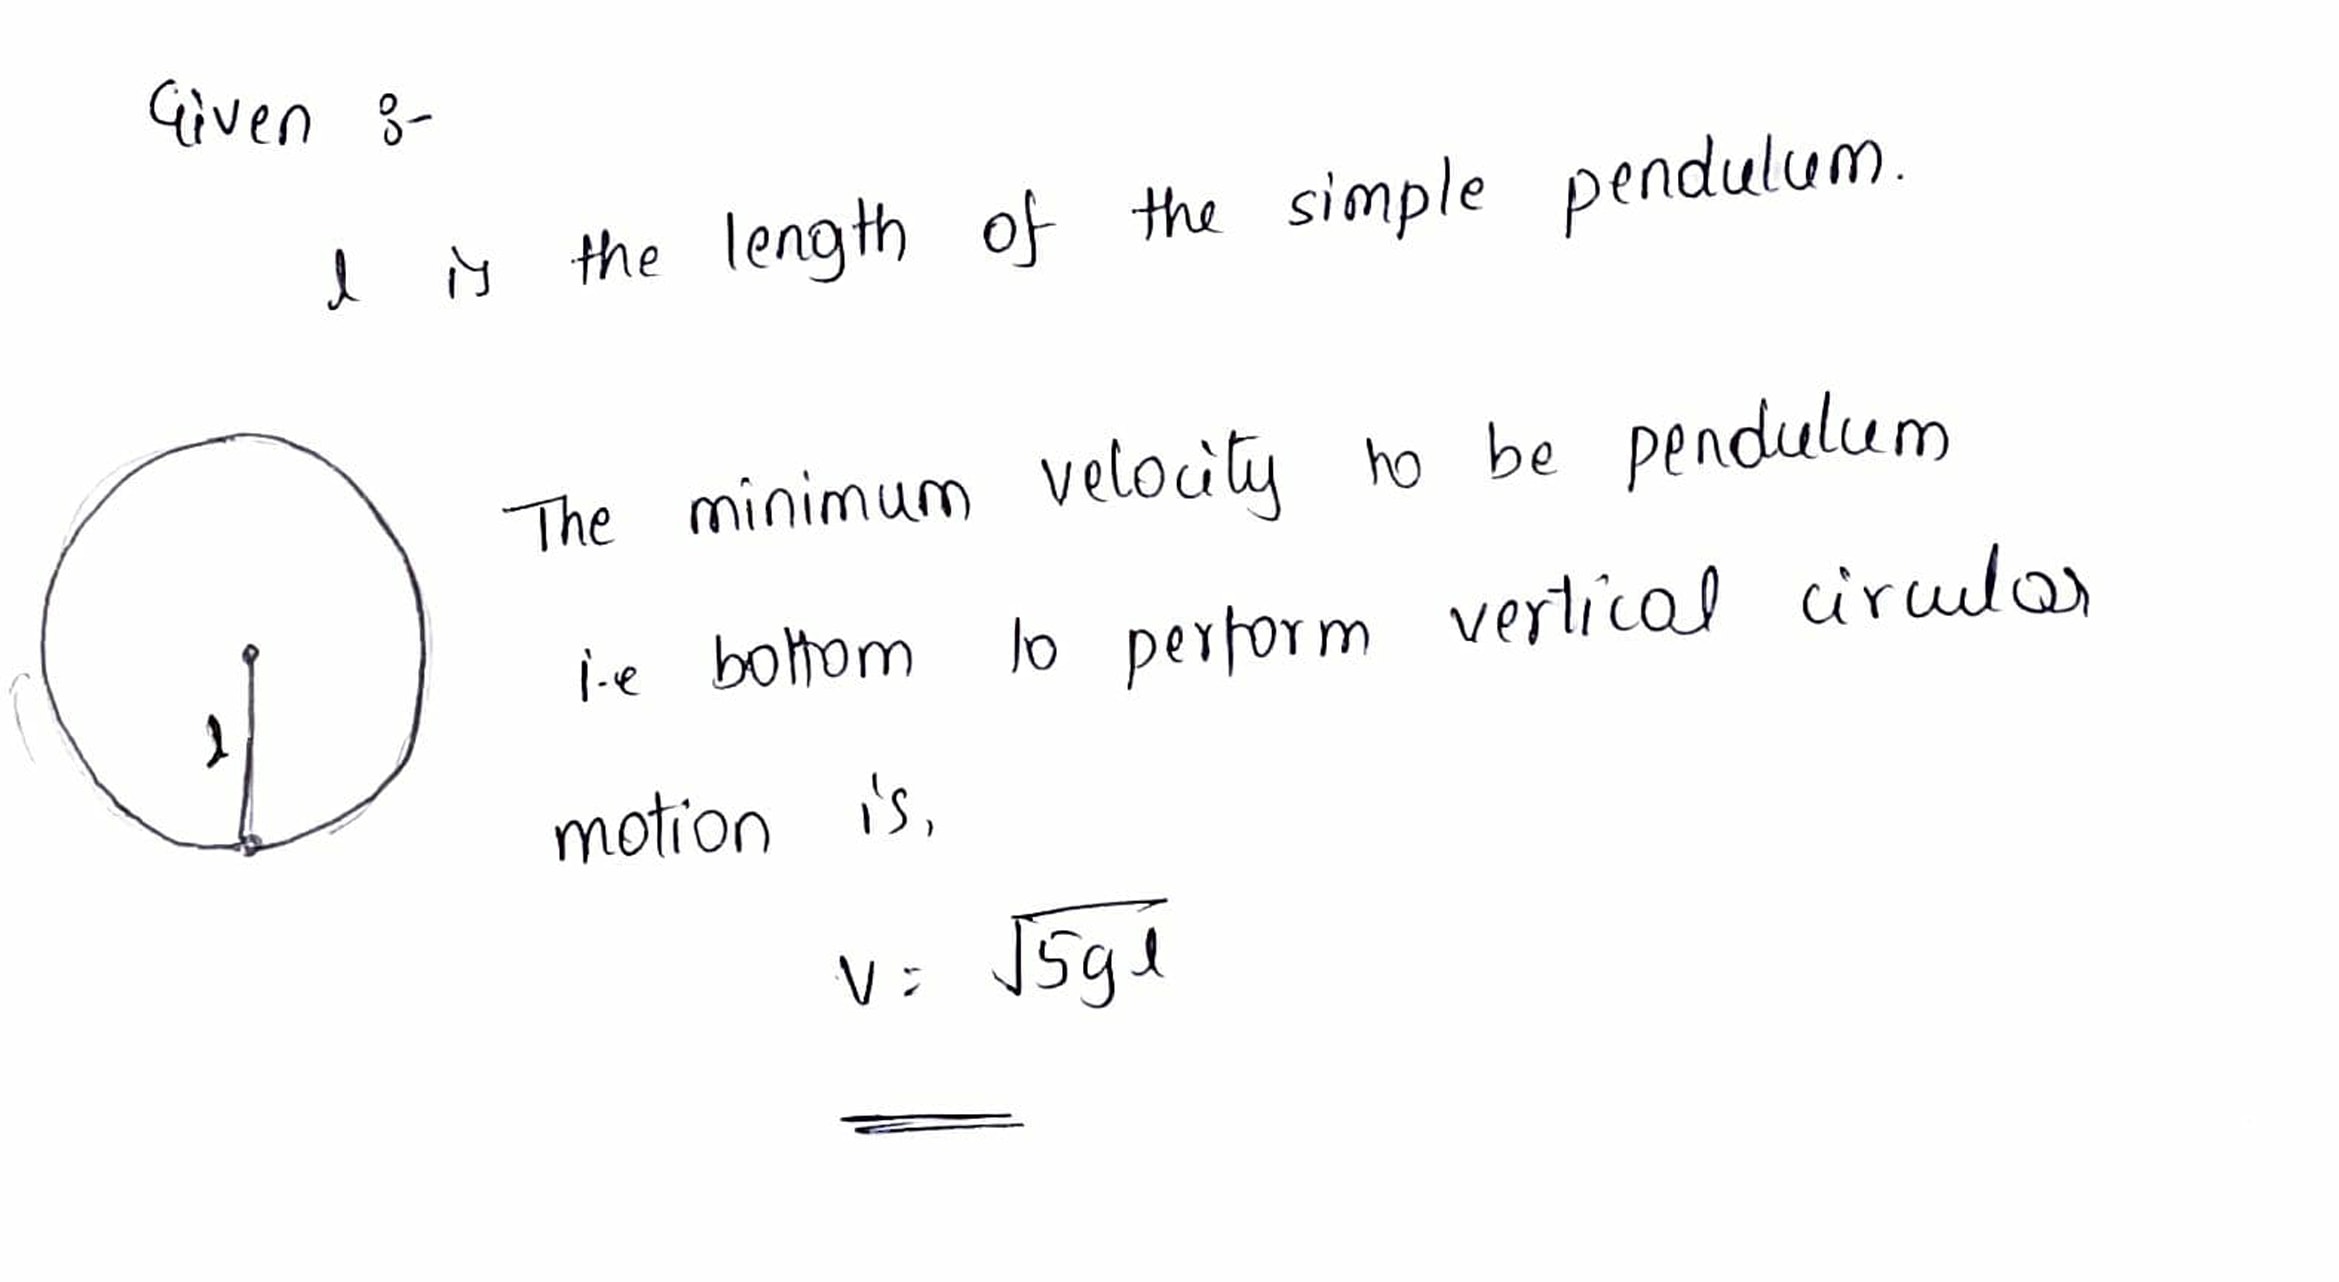 Given :-
l is the length of the simple pendulum.
The minimum velocity to be pendulum
i.e bottom to perform vertical circular
l
motion is,
v = √5gl